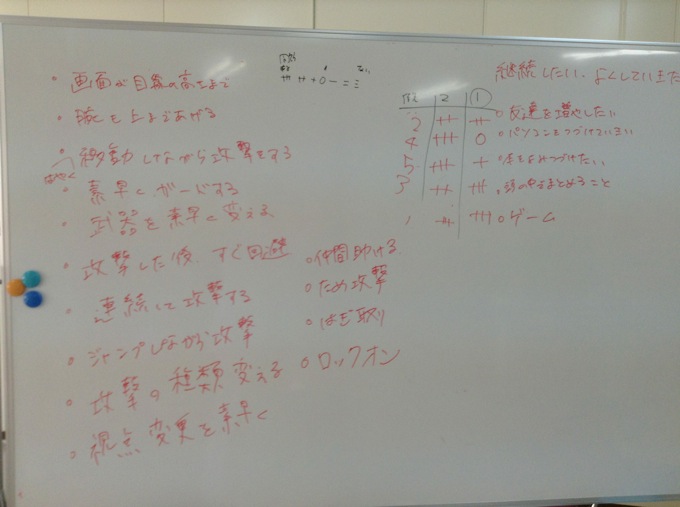 ・画面が目線の高さまで
・腕を上まであげる
・移動しながら攻撃をする
・素早くガードする
・武器を素早く変える
・攻撃した後、すぐ回避
・連続して攻撃する
・ジャンプしながら攻撃
・攻撃の種類変える
・視点変更を素早く
○仲間助ける
○ため攻撃
○はぎ取り
○ロックオン
ない
卌 卄 + 0 − = ≡
継続したい、よくしていきたい
2 ①
2 卄 卄 ○友達を増やしたい
4 卅 0 ○パソコンをつづけていきたい
5 卅 + ○本をよみつづけたい
3 卄 卅 ○頭の中をまとめること
1 卄 卅 ○ゲーム